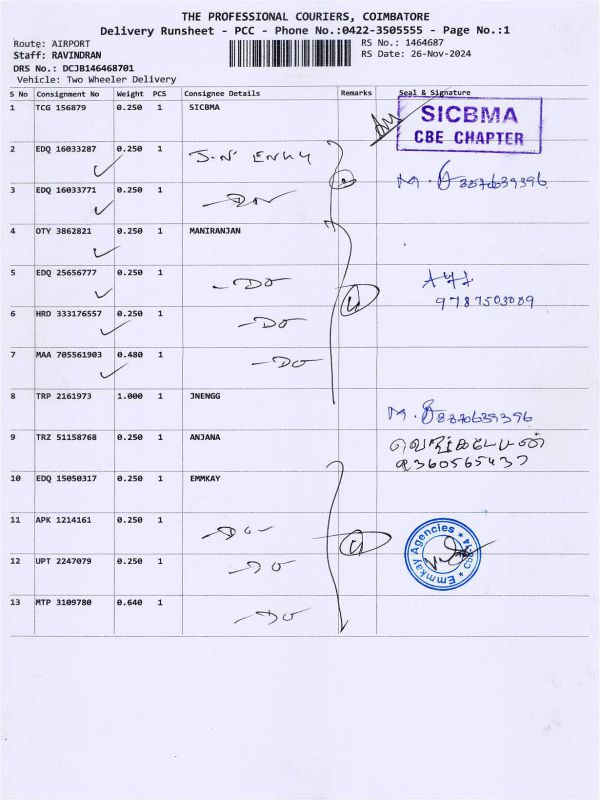 THE PROFESSIONAL COURIERS, COIMBATORE
Delivery Runsheet - PCC - Phone No.:0422-3505555 - Page No.:1
Route: AIRPORT RS No.: 1464687
Staff: RAVINDRAN RS Date: 26-Nov-2024
DRS No.: DCJB146468701
Vehicle: Two Wheeler Delivery
S No Consignment No Weight PCS Consignee Details Remarks Seal & Signature
1 TCG 156879 0.250 1 SICBMA
SICBMA
CBE CHAPTER
2 EDQ 16033287 0.250 1 J.N
3 EDQ 16033771 0.250 1
4 OTY 3862821 0.250 1 MANIRANJAN
5 EDQ 25656777 0.250 1 -DO
9787503089
6 HRD 333176557 0.250 1 -DO
7 MAA 705561903 0.480 1 -DO
8 TRP 2161973 1.000 1 JNENGG 8870639396
9 TRZ 51158768 0.250 1 ANJANA
9360565437
10 EDQ 15050317 0.250 1 EMMKAY
11 APK 1214161 0.250 1 -DO-
Emmkay Agencies
12 UPT 2247079 0.250 1 -DO
13 MTP 3109780 0.640 1 -DO